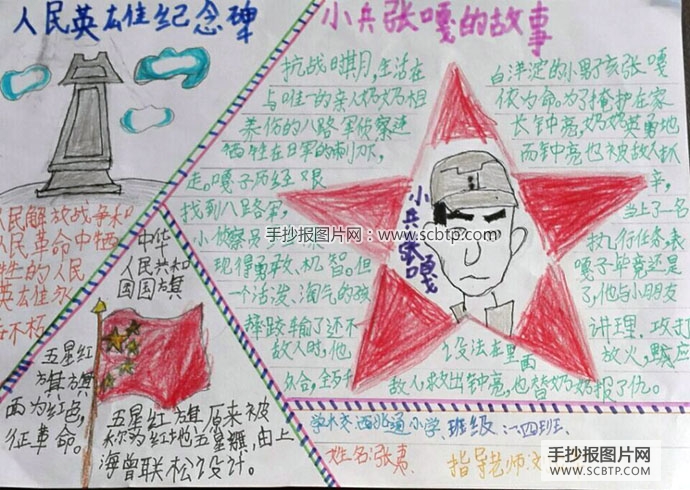 人民英雄纪念碑
小兵张嘎的故事
人民解放战争和
人民革命中牺
牲的人民
英雄永
不朽
中华
人民共和
国国旗
五星红
旗旗
面为红色,
征革命。
五星红旗原来被
称为红地五星旗,由上
海曾联松设计。
抗战时期,生活在白洋淀的小男孩张嘎
与唯一的亲人奶奶相依为命。为了掩护在家
养伤的八路军侦察连长钟亮,奶奶英勇地
牺牲在日军的刺刀,而钟亮也被敌人抓
走。嘎子历经艰辛,
找到八路军,当上了一名
小侦察员
执行任务,表
现得勇敢、机智。但嘎子毕竟还是
一个活泼、淘气的孩了,他与小朋友
摔跤输了还不讲理,
攻打
敌人时,他设法在里面放火,
敌人,救出钟亮,也替奶奶报了仇。
小兵张嘎
手抄报图片网:www.scbtp.com
学校:西张通小学 班级:二四班
姓名:张
指导老师:
手抄报图片网
WWW.SCBTP.COM